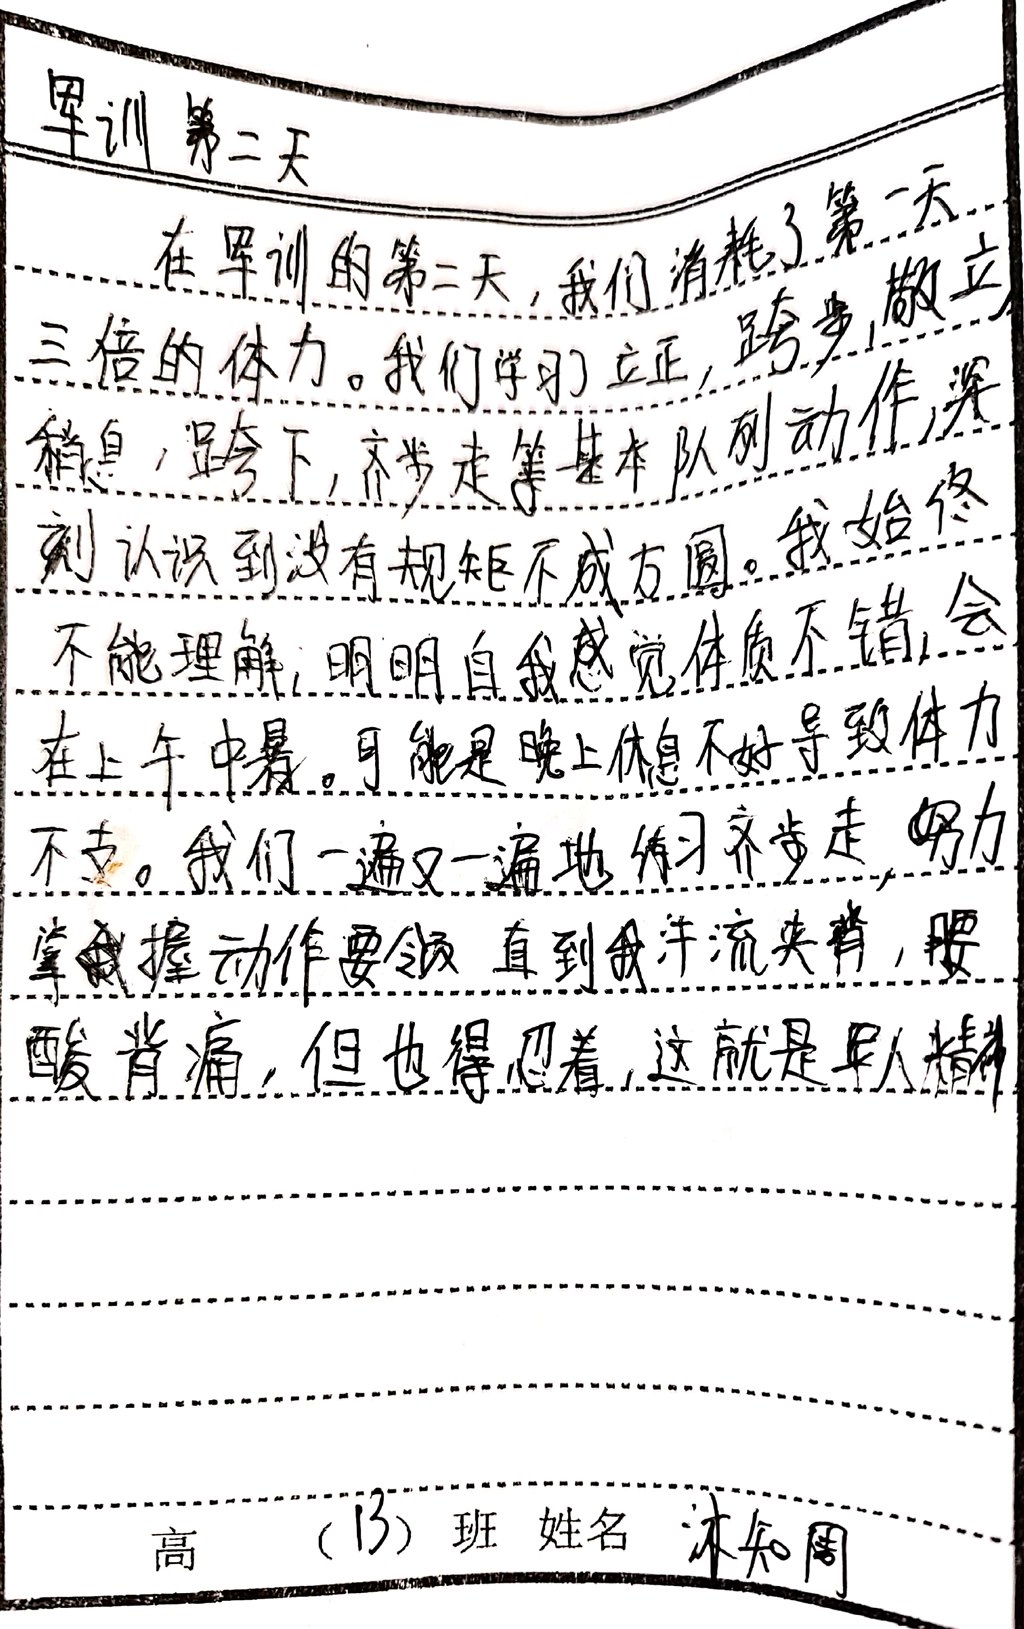 军训第二天
在军训的第二天，我们消耗了第一天
三倍的体力。我们学习了立正，跨步，散立
稍息，跨下，齐步走等基本队列动作，深
刻认识到没有规矩不成方圆。我始终
不能理解，明明自我感觉体质不错，会
在上午中暑。可能是晚上休息不好导致体力
不支。我们一遍又一遍地练习齐步走，努力
掌握动作要领 直到我汗流夹背，腰
酸背痛，但也得忍着，这就是军人精神
高 （13）班 姓名 沐知周